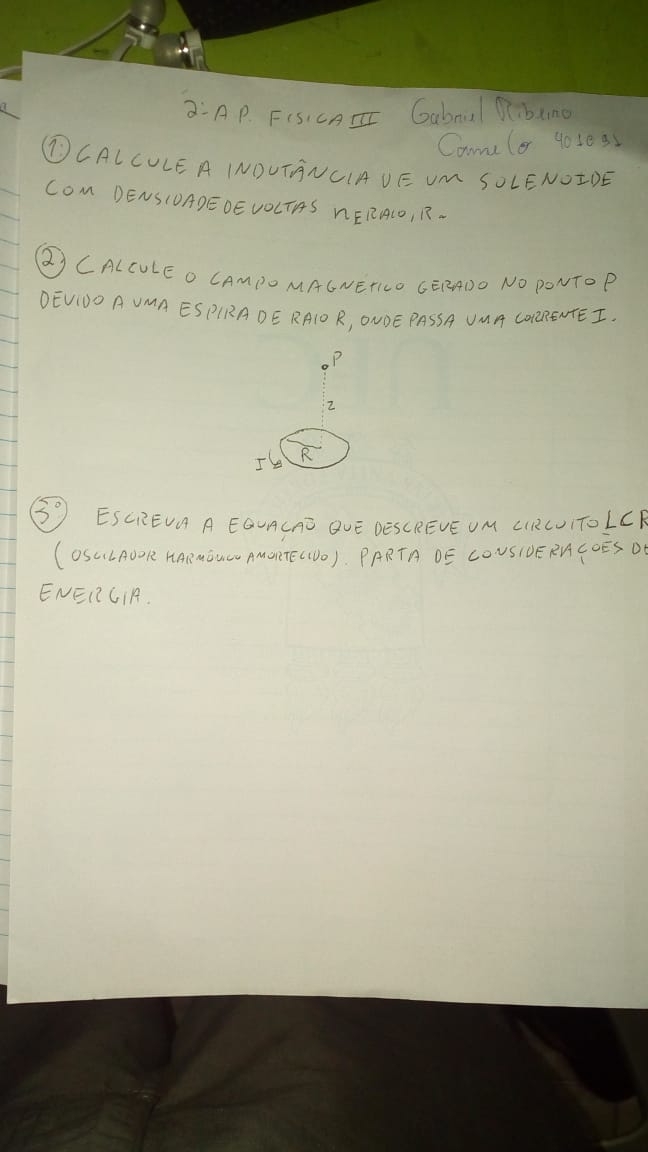 2ª A.P. FISICA III Gabriel Ribeiro
Camelo 401091
1) CALCULE A INDUTÂNCIA DE UM SOLENOIDE
COM DENSIDADE DE VOLTAS n E RAIO, R.
2) CALCULE O CAMPO MAGNÉTICO GERADO NO PONTO P
DEVIDO A UMA ESPIRA DE RAIO R, ONDE PASSA UMA CORRENTE I.
P
z
R
I
3º) ESCREVA A EQUAÇÃO QUE DESCREVE UM CIRCUITO LCR
(OSCILADOR HARMÔNICO AMORTECIDO). PARTA DE CONSIDERAÇÕES DE
ENERGIA.